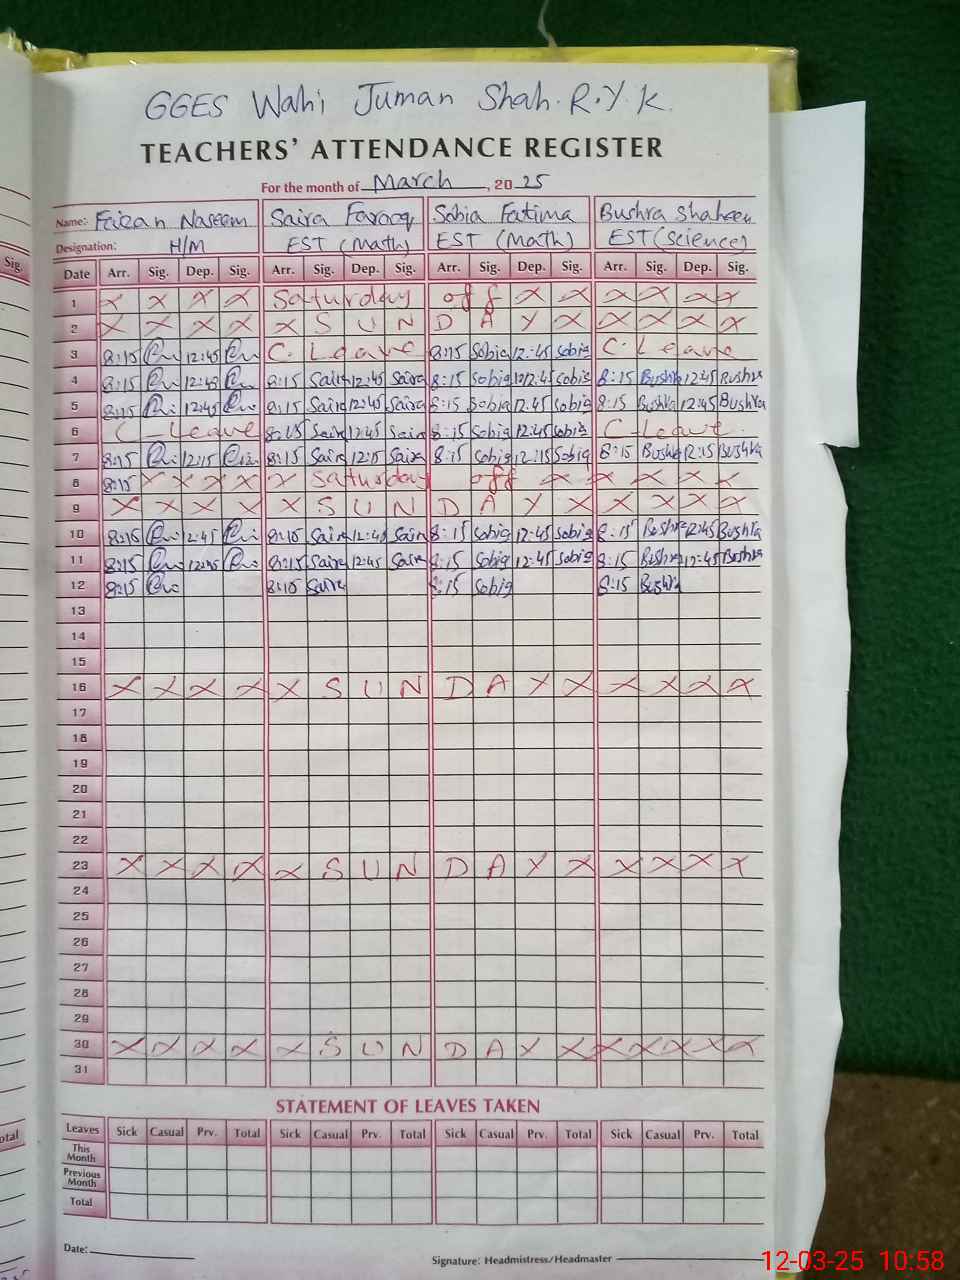 GGES Wahi Juman Shah. R.Y.K.
TEACHERS' ATTENDANCE REGISTER
For the month of March, 2025
Name: Faizan Naseem Saira Farooq Sobia Fatima Bushra Shaheen
Designation: H/M EST (Math) EST (Math) EST (Science)
Sig. Date Arr. Sig. Dep. Sig. Arr. Sig. Dep. Sig. Arr. Sig. Dep. Sig. Arr. Sig. Dep. Sig.
1 X X X X Saturday off X X X X X X
2 X X X X X S U N D A Y X X X X X
3 8:15 12:45 C. Leave 8:15 Sobia 12:45 Sobia C. Leave
4 8:15 12:45 8:15 Saira 12:45 Saira 8:15 Sobia 12:45 Sobia 8:15 Bushra 12:45 Bushra
5 8:15 12:45 8:15 Saira 12:45 Saira 8:15 Sobia 12:45 Sobia 8:15 Bushra 12:45 Bushra
6 C - Leave 8:15 Saira 12:45 Saira 8:15 Sobia 12:45 Sobia C - Leave.
7 8:15 12:15 8:15 Saira 12:15 Saira 8:15 Sobia 12:15 Sobia 8:15 Bushra 12:15 Bushra
8 8:15 X X X X X Saturday off X X X X X
9 X X X X X S U N D A Y X X X X X
10 8:15 12:45 8:10 Saira 12:45 Saira 8:15 Sobia 12:45 Sobia 8:15 Bushra 12:45 Bushra
11 8:15 12:45 8:15 Saira 12:45 Saira 8:15 Sobia 12:45 Sobia 8:15 Bushra 12:45 Bushra
12 8:15 8:10 Saira 8:15 Sobia 8:15 Bushra
13
14
15
16 X X X X X S U N D A Y X X X X X
17
18
19
20
21
22
23 X X X X X S U N D A Y X X X X X
24
25
26
27
28
29
30 X X X X X S U N D A Y X X X X X X
31
STATEMENT OF LEAVES TAKEN
Leaves Sick Casual Prv. Total Sick Casual Prv. Total Sick Casual Prv. Total Sick Casual Prv. Total
This Month
Previous Month
Total
Date:
Signature: Headmistress/Headmaster
12-03-25 10:58